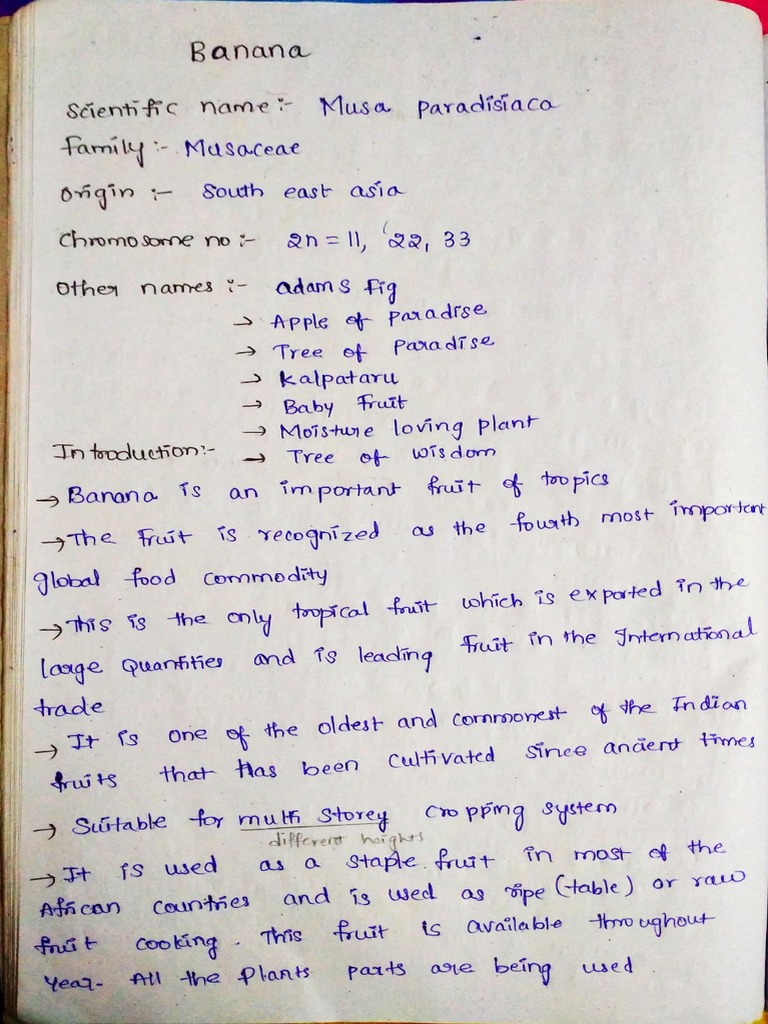 Banana
Scientific name:- Musa paradisiaca
family:- Musaceae
Origin:- South east asia
Chromosome no:- 2n = 11, 22, 33
Other names:- adams fig
→ Apple of paradise
→ Tree of paradise
→ Kalpataru
→ Baby fruit
→ Moisture loving plant
Introduction:- → Tree of wisdom
→ Banana is an important fruit of tropics
→ The fruit is recognized as the fourth most important
global food commodity
→ This is the only tropical fruit which is exported in the
large quantities and is leading fruit in the International
trade
→ It is one of the oldest and commonest of the Indian
fruits that has been cultivated since ancient times
→ Suitable for multi storey cropping system
different heights
→ It is used as a staple fruit in most of the
African countries and is used as ripe (table) or raw
fruit cooking. This fruit is available throughout
year. All the plants parts are being used